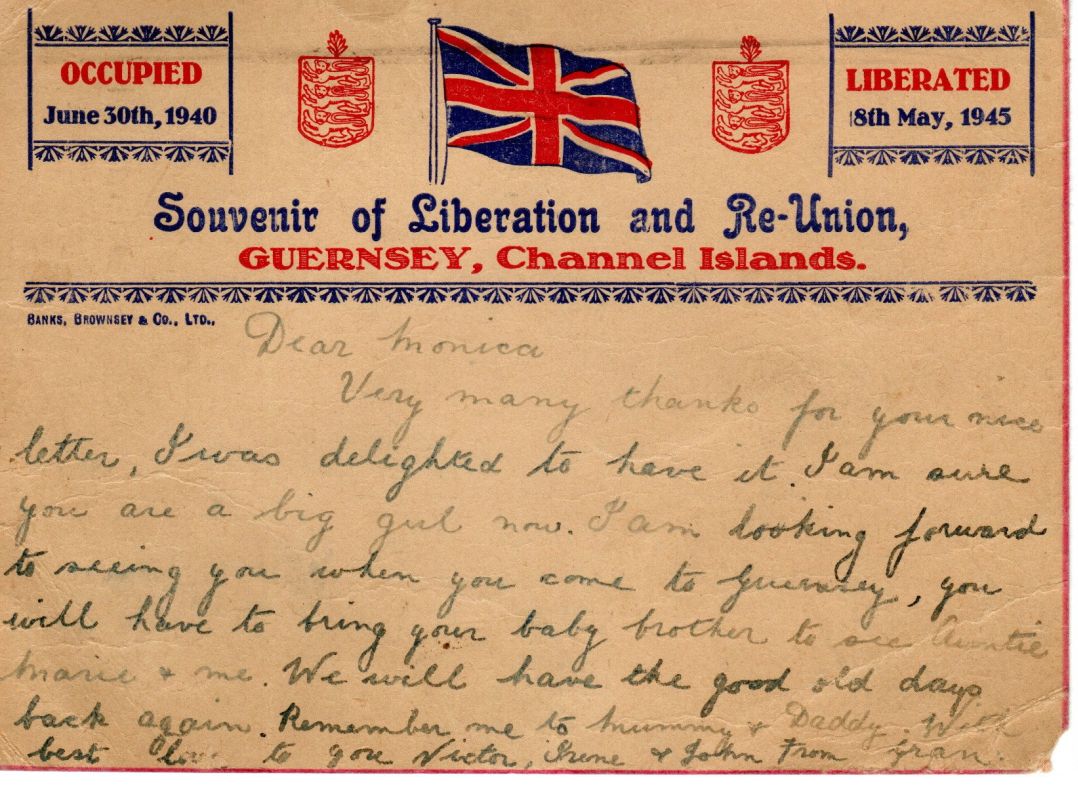 OCCUPIED
June 30th, 1940
LIBERATED
8th May, 1945
Souvenir of Liberation and Re-Union,
GUERNSEY, Channel Islands.
BANKS, BROWNSEY & CO., LTD.,
Dear Monica
Very many thanks for your nice
letter, I was delighted to have it. I am sure
you are a big girl now. I am looking forward
to seeing you when you come to Guernsey, you
will have to bring your baby brother to see Auntie
Marie & me. We will have the good old days
back again. Remember me to Mummy & Daddy. With
best love to you Victor, Irene & John From Gran.